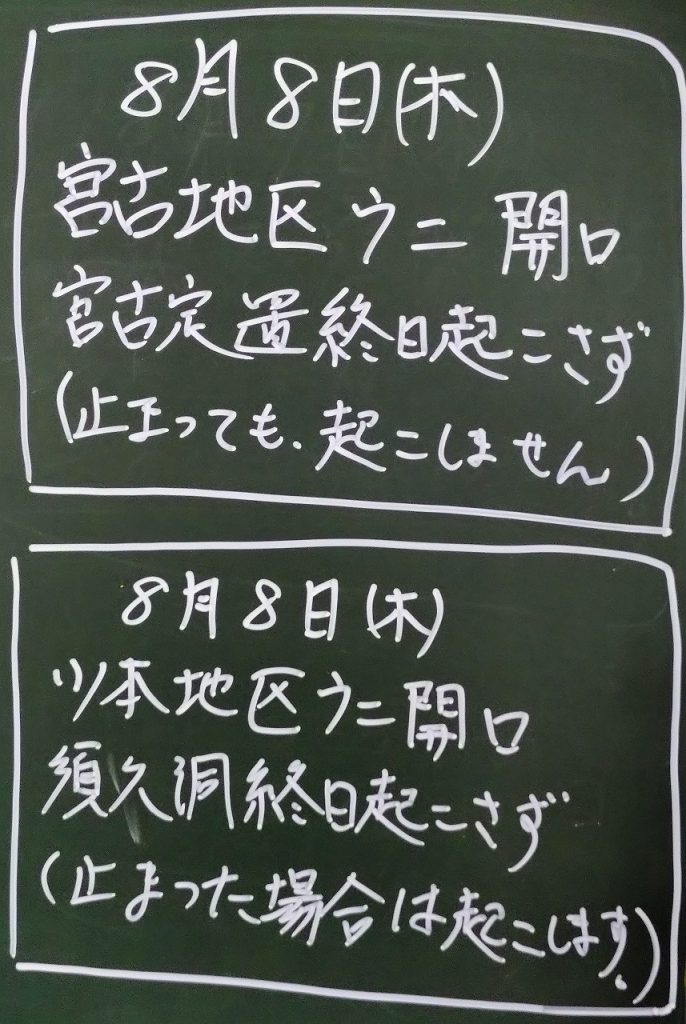 8月8日(木)
宮古地区ウニ開口
宮古定置終日起こさず
(止まっても、起こしません)
8月8日(木)
津本地区ウニ開口
須久洞終日起こさず
(止まった場合は起こします。)